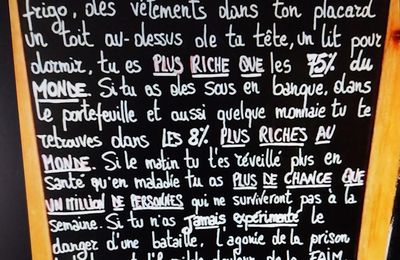 frigo, des vêtements dans ton placard
un toit au-dessus de ta tête, un lit pour
dormir, tu es PLUS RICHE QUE les 75% du
MONDE. Si tu as des sous en banque, dans
le portefeuille et aussi quelque monnaie tu te
retrouves dans LES 8% PLUS RICHES AU
MONDE. Si le matin tu t'es réveillé plus en
santé qu'en maladie tu as PLUS DE CHANCE QUE
UN MILLION DE PERSONNES qui ne surviveront pas à la
semaine. Si tu n'as jamais expérimenté le
danger d'une bataille, l'agonie de la prison
douleur de la FAIM